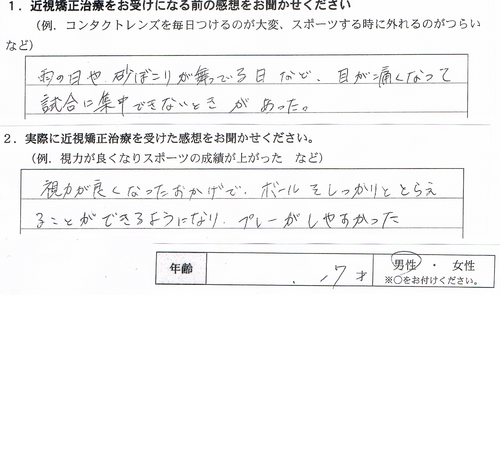 １．近視矯正治療をお受けになる前の感想をお聞かせください
（例．コンタクトレンズを毎日つけるのが大変、スポーツする時に外れるのがつらい
など）
雨の日や砂ぼこりが舞ってる日など、目が痛くなって
試合に集中できないときがあった。
２．実際に近視矯正治療を受けた感想をお聞かせください。
（例．視力が良くなりスポーツの成績が上がった　など）
視力が良くなったおかげで、ボールをしっかりととらえ
ることができるようになり、プレーがしやすかった
年齢 17才 男性 ・ 女性
※○をお付けください。